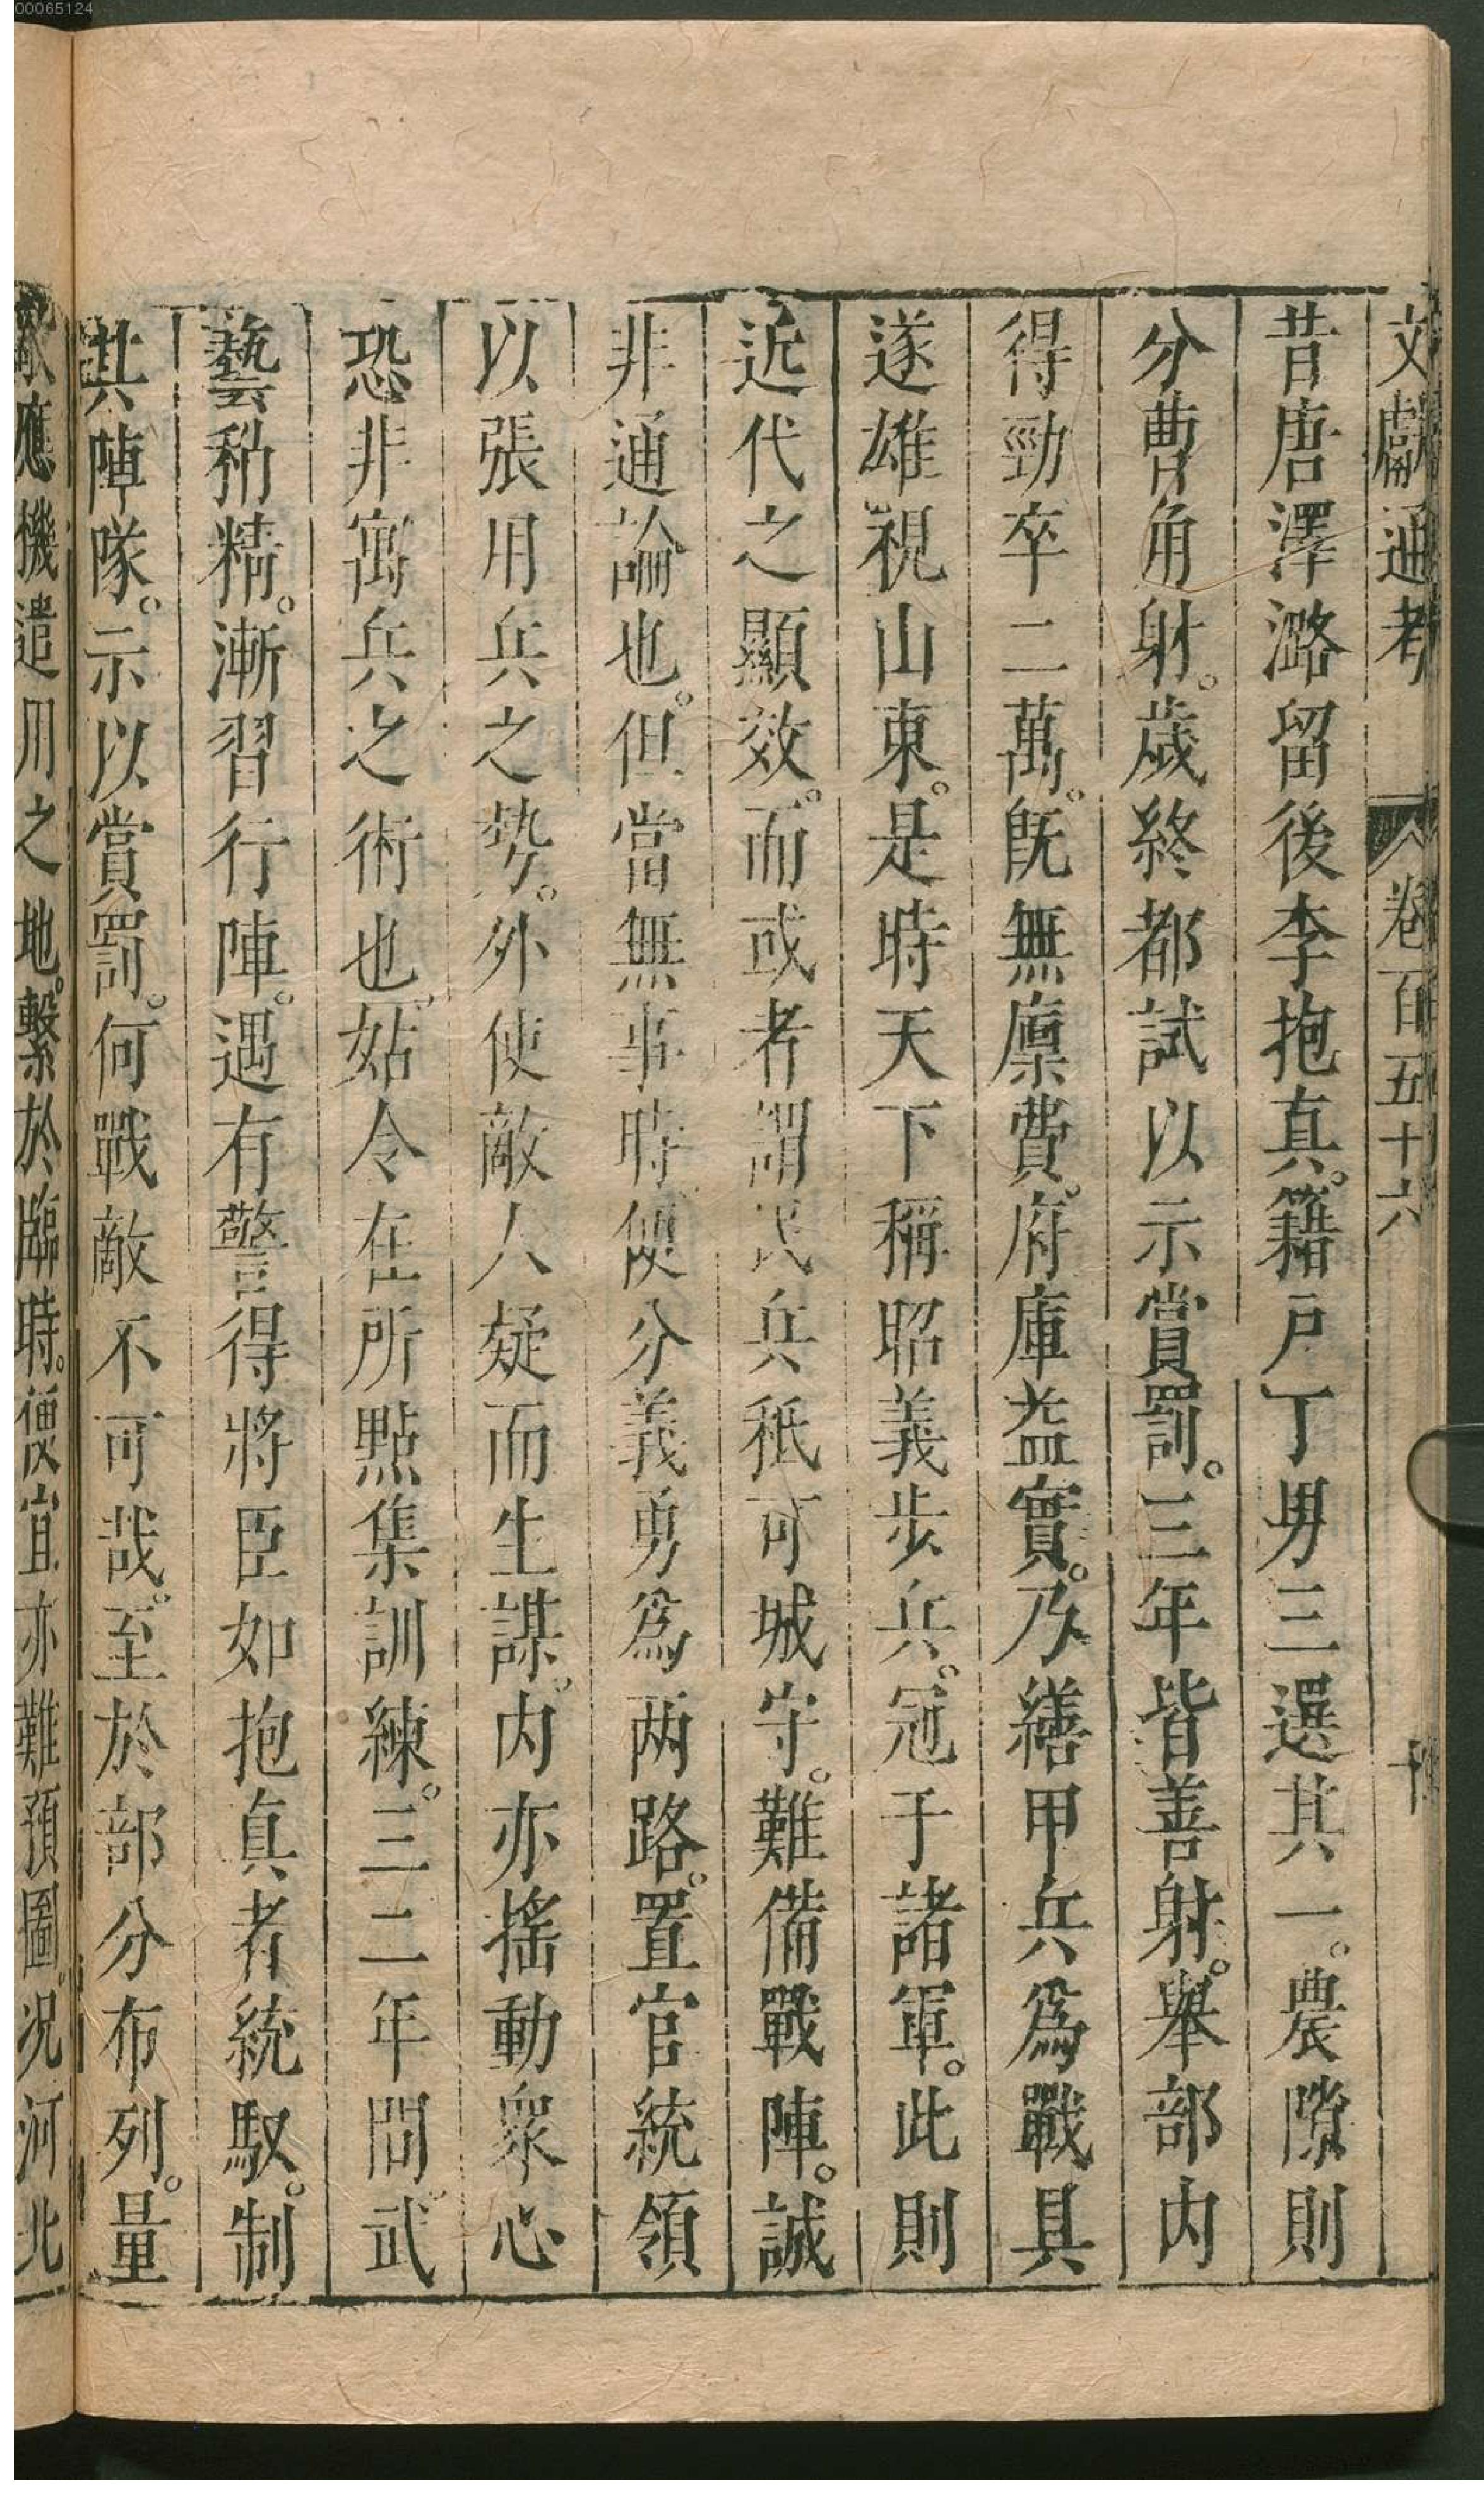 00065124
文獻通考 卷百五十六 十
昔唐澤潞留後李抱真。籍戸丁男三選其一。農隙則
分曹角射。歲終都試以示賞罰。三年皆善射。舉部内
得勁卒二萬。旣無廪費。府庫益實。乃繕甲兵爲戰具
遂雄視山東。是時天下稱昭義步兵。冠于諸軍。此則
近代之顯效。而或者謂民兵秪可城守。難備戰陣。誠
非通論也。但當無事時便分義勇爲两路。置官統領
以張用兵之勢。外使敵人疑而生謀。内亦搖動衆心
恐非寓兵之術也。姑令在所點集訓練。三二年間。武
藝稍精。漸習行陣。遇有警得將臣如抱真者統馭。制
其陣隊。示以賞罰。何戰敵不可哉。至於部分布列。量
敵應機遣用之地。繫於臨時。便宜亦難預圖。况河北